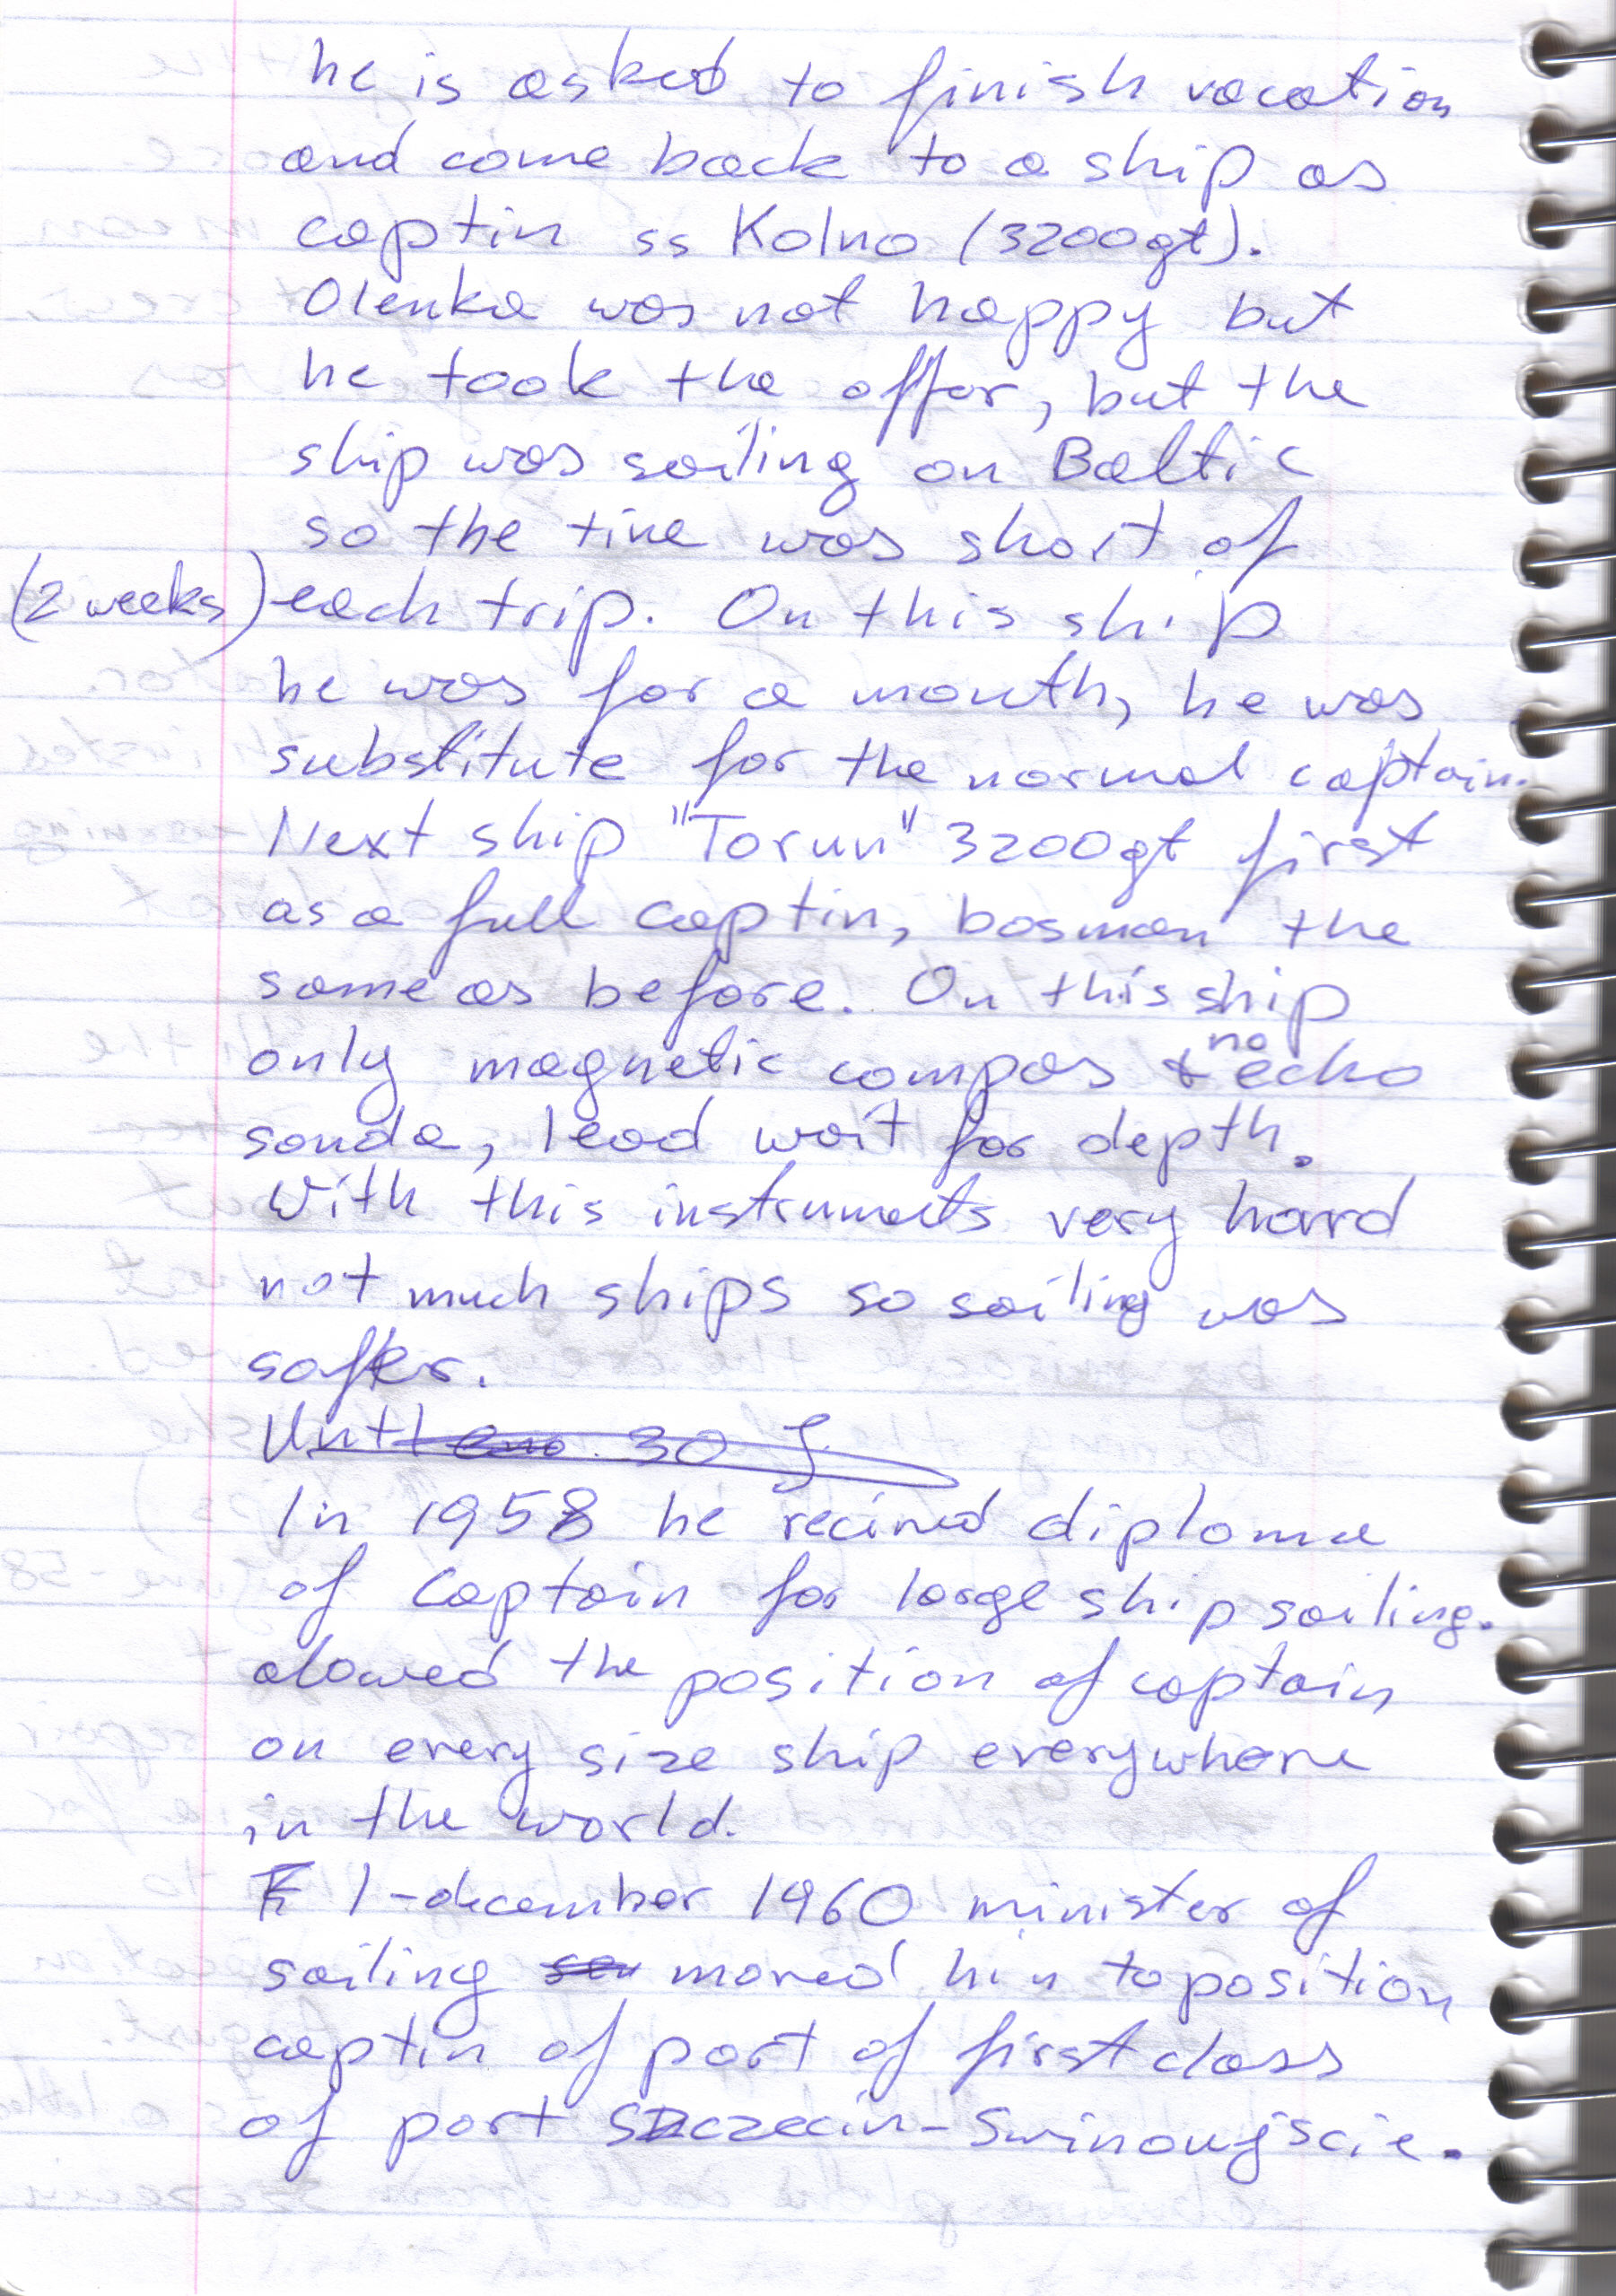 he is asked to finish vacation
and come back to a ship as
captin ss Kolno (3200gt).
Olenka was not happy but
he took the offer, but the
ship was sailing on Baltic
so the time was short of
(2 weeks) each trip. On this ship
he was for a month, he was
substitute for the normal captain.
Next ship "Torun" 3200gt first
as a full captin, bosman the
same as before. On this ship
only magnetic compas & no echo
sonda, lead wait for depth.
With this instruments very hard
not much ships so sailing was
safer.
30
In 1958 he recived diploma
of Captain for large ship sailing.
alowed the position of captain
on every size ship everywhere
in the world.
1-december 1960 minister of
sailing moved him to position
captin of port of first class
of port Szczecin-Swinoujscie.